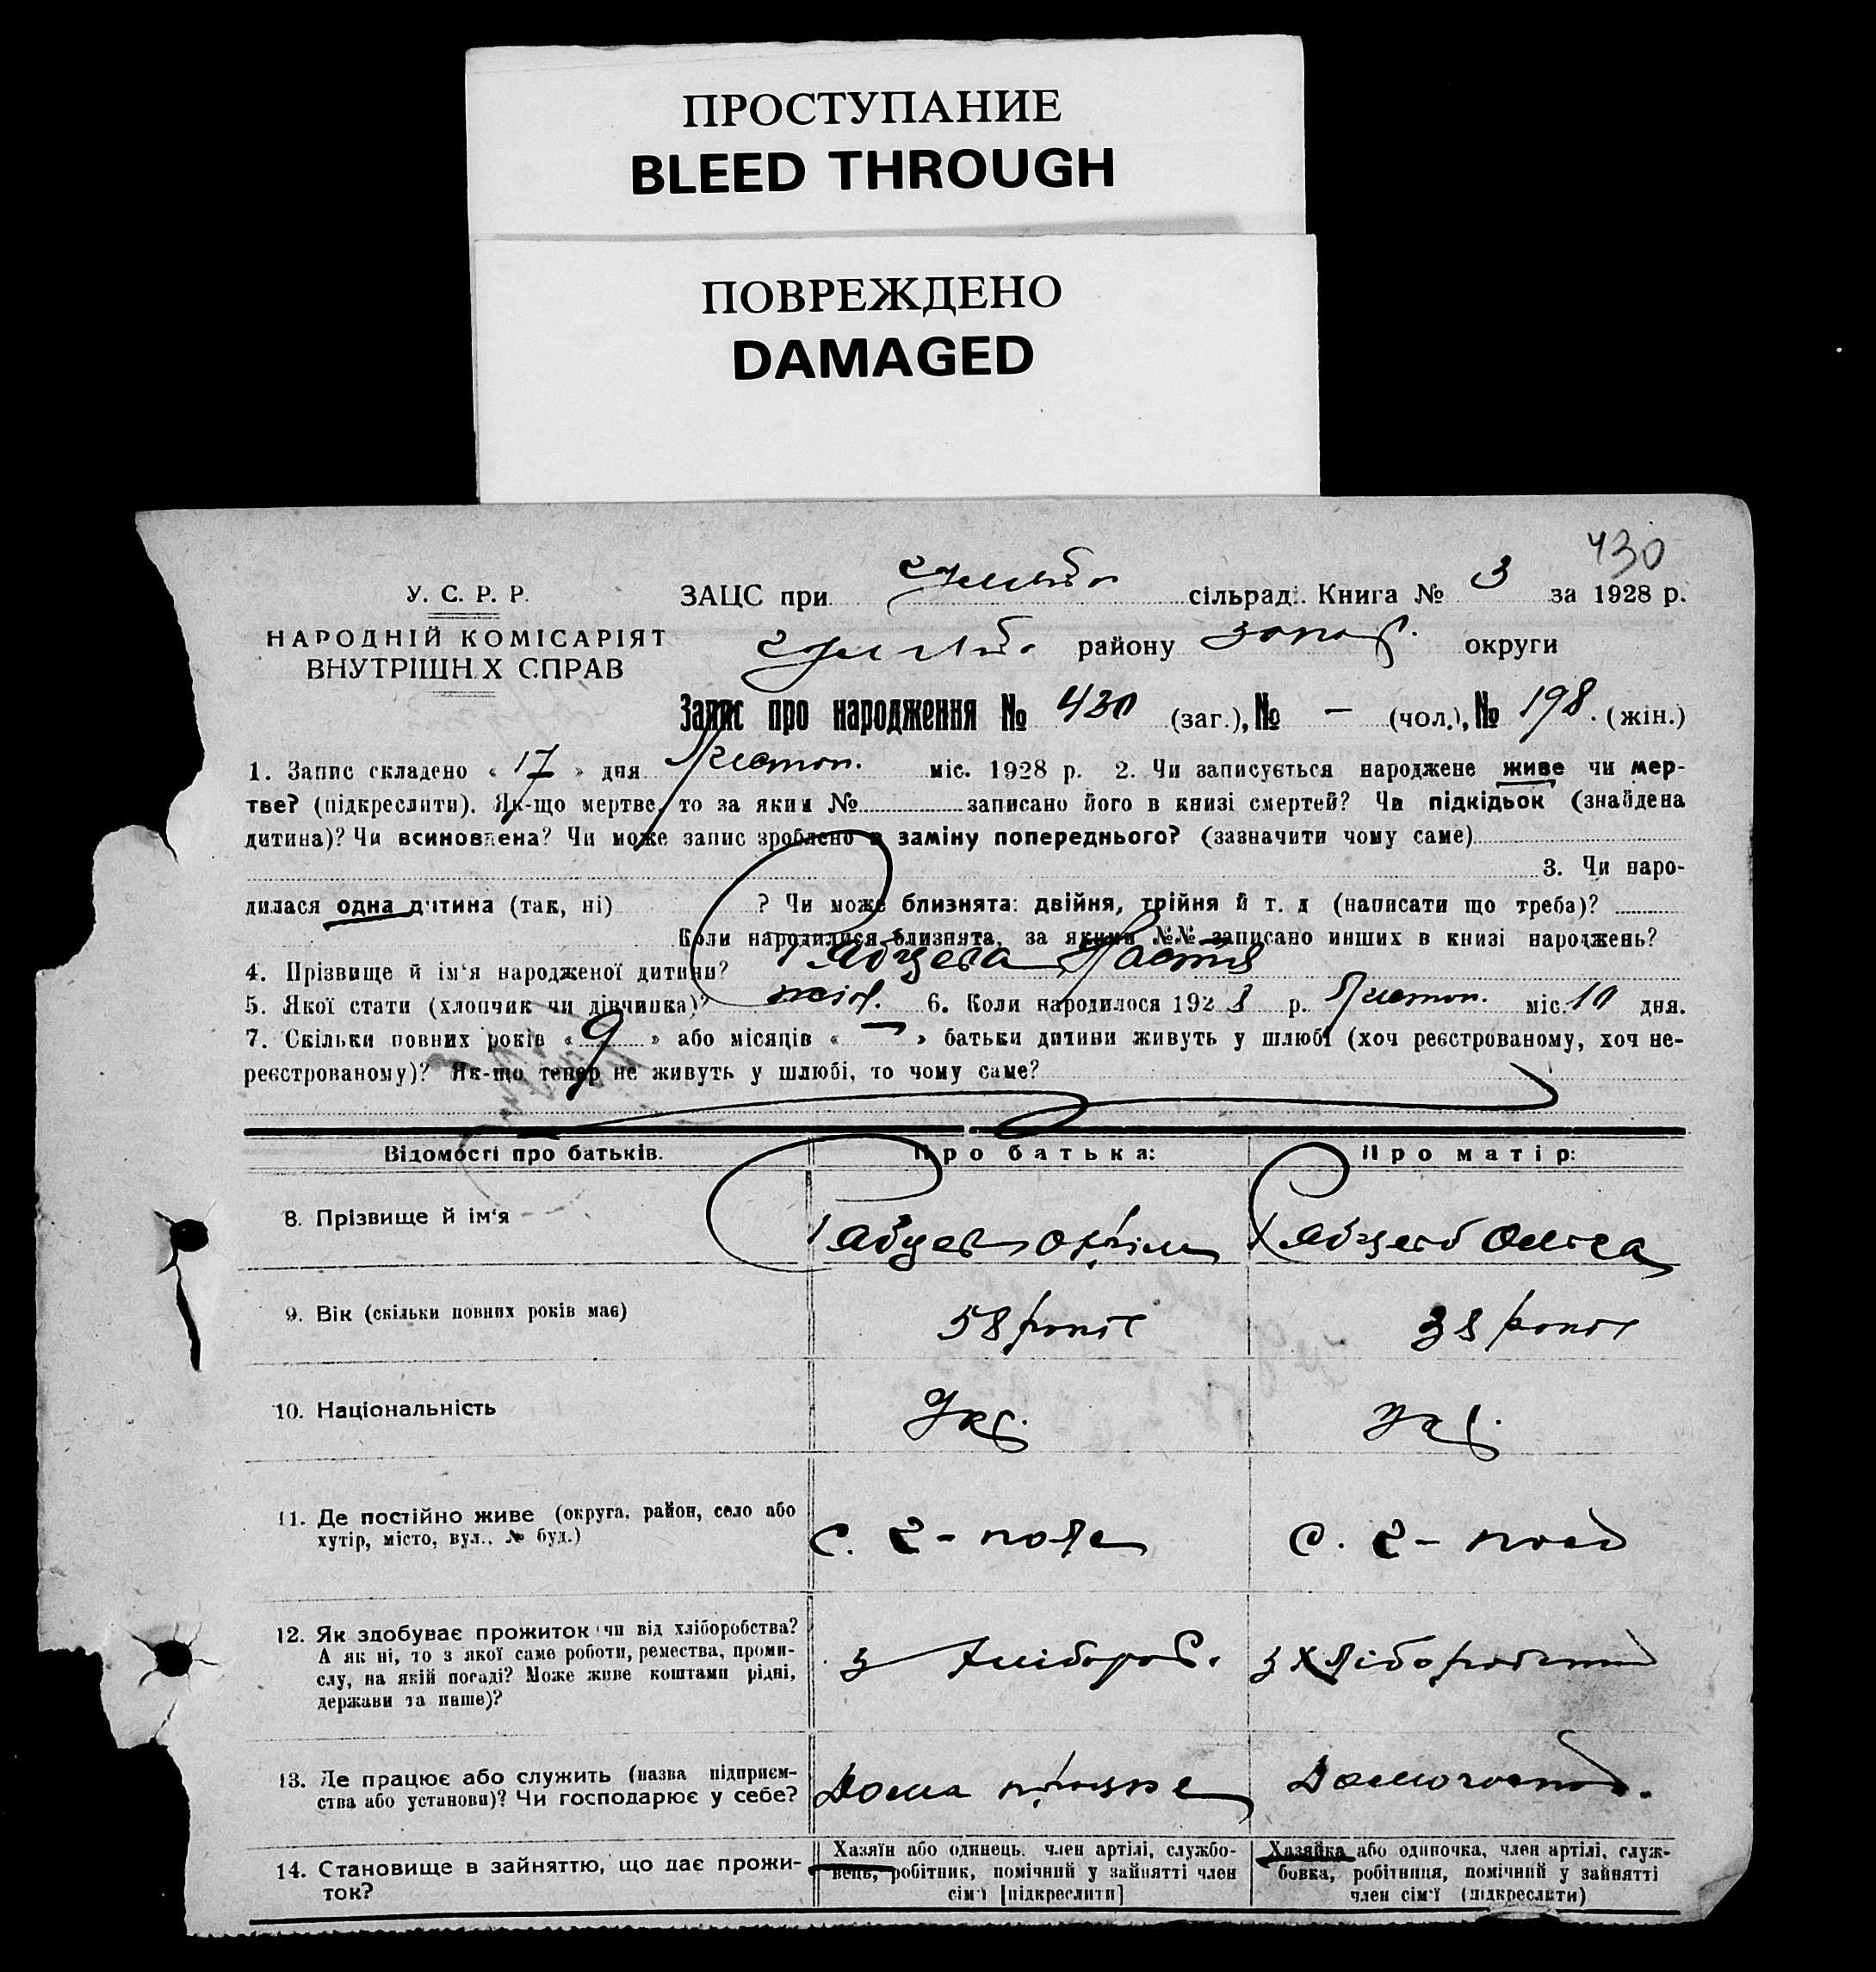 ПРОСТУПАНИЕ
BLEED THROUGH
ПОВРЕЖДЕНО
DAMAGED
430
У. С. Р. Р.
НАРОДНІЙ КОМІСАРІЯТ
ВНУТРІШН Х СПРАВ
ЗАЦС при сільрад. Книга № 3 за 1928 р.
району Запор. округи
Запис про народження № 430 (заг.), № — (чол.), № 198. (жін.)
1. Запис складено « 17 » дня Листоп. міс. 1928 р. 2. Чи записується народжене живе чи мер-
тве? (підкреслити). Як-що мертве, то за яким № записано його в книзі смертей? Чи підкідьок (знайдена
дитина)? Чи всиновлена? Чи може запис зроблено в заміну попереднього? (зазначити чому саме)
3. Чи наро-
дилася одна дитина (так, ні) ? Чи може близнята: двійня, трійня й т. д (написати що треба)?
Коли народилися близнята, за якими №№ записано инших в книзі народжень?
4. Прізвище й ім'я народженої дитини? Рабцева Настя
5. Якої стати (хлопчик чи дівчинка)? жін. 6. Коли народилося 1928 р. Листоп. міс. 10 дня.
7. Скільки повних років « 9 » або місяців « — » батьки дитини живуть у шлюбі (хоч реєстрованому, хоч не-
реєстрованому)? Як-що тепер не живуть у шлюбі, то чому саме?
Відомості про батьків. Про батька: Про матір:
8. Прізвище й ім'я Рабцев Юхим Рабцева
9. Вік (скільки повних років має) 58 років 38 років
10. Національність Укр. Укр.
11. Де постійно живе (округа, район, село або
хутір, місто, вул., № буд.) с. Г-поле с. Г-поле
12. Як здобуває прожиток чи від хліборобства?
А як ні, то з якої саме роботи, ремества, проми-
слу, на якій посаді? Може живе коштами рідні,
держави та инше)? з хлібороб. з хліборобства
13. Де працює або служить (назва підприєм-
ства або установи)? Чи господарює у себе? Дома працює Домогоспод.
14. Становище в зайняттю, що дає прожи-
ток?
Хазяїн або одинець, член артілі, службо-
вець, робітник, помічний у зайнятті член
сім'ї [підкреслити]
Хазяйка або одиночка, член артілі, служ-
бовка, робітниця, помічний у зайнятті
член сім'ї (підкреслити)